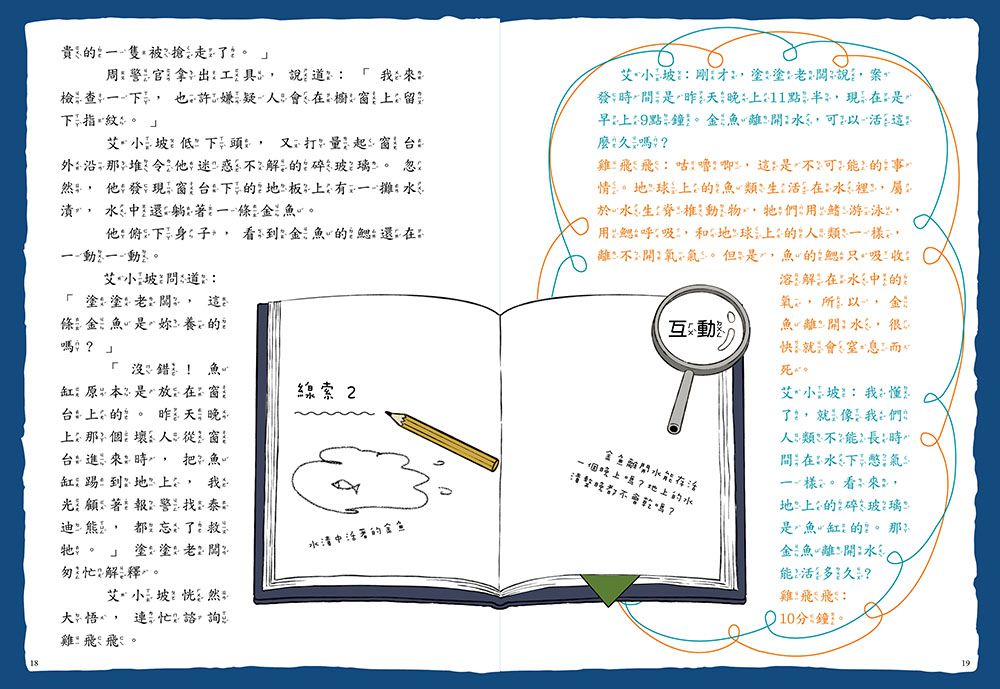 貴的一隻被搶走了。」
周警官拿出工具，說道：「我來
檢查一下，也許嫌疑人會在櫥窗上留
下指紋。」
艾小坡低下頭，又打量起窗台
外沿那堆令他迷惑不解的碎玻璃。忽
然，他發現窗台下的地板上有一攤水
漬，水中還躺著一條金魚。
他俯下身子，看到金魚的鰓還在
一動一動。
艾小坡問道：
「塗塗老闆，這
條金魚是妳養的
嗎？」
「沒錯！魚
缸原本是放在窗
台上的。昨天晚
上那個壞人從窗
台進來時，把魚
缸踢到地上，我
光顧著報警找泰
迪熊，都忘了救
牠。」塗塗老闆
匆忙解釋。
艾小坡恍然
大悟，連忙諮詢
雞飛飛。
18
線索 2
水漬中活著的金魚
互動
金魚離開水能存活
一個晚上嗎？地上的水
漬整晚都不會乾嗎？
艾小坡：剛才，塗塗老闆說，案
發時間是昨天晚上11點半，現在是
早上9點鐘。金魚離開水，可以活這
麼久嗎？
雞飛飛：咕嚕唧，這是不可能的事
情。地球上的魚類生活在水裡，屬
於水生脊椎動物，牠們用鰭游泳，
用鰓呼吸，和地球上的人類一樣，
離不開氧氣。但是，魚的鰓只吸收
溶解在水中的
氧，所以，金
魚離開水，很
快就會窒息而
死。
艾小坡：我懂
了，就像我們
人類不能長時
間在水下憋氣
一樣。看來，
地上的碎玻璃
是魚缸的。那
金魚離開水，
能活多久？
雞飛飛：
10分鐘。
19